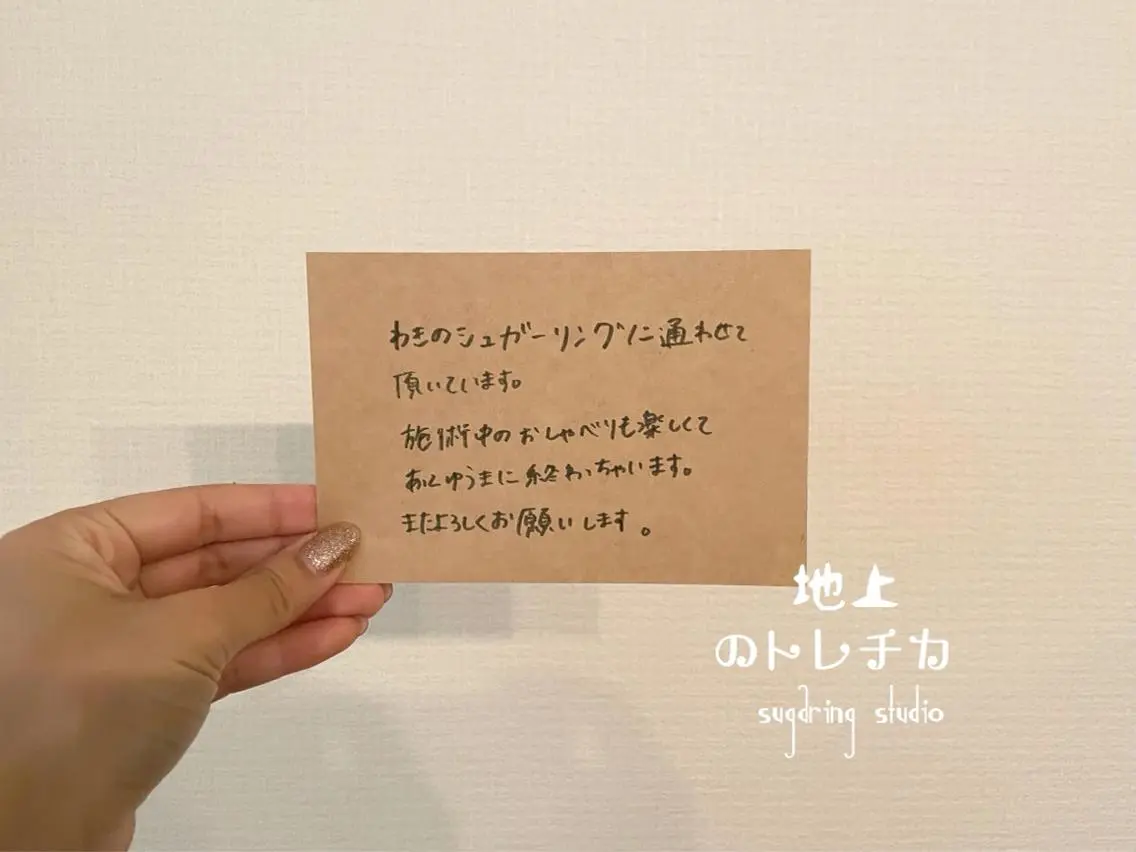 わきのシュガーリングに通わせて
頂いています。
施術中のおしゃべりも楽しくて
あっとゆうまに終わっちゃいます。
またよろしくお願いします。
地上
のトレチカ
sugaring studio